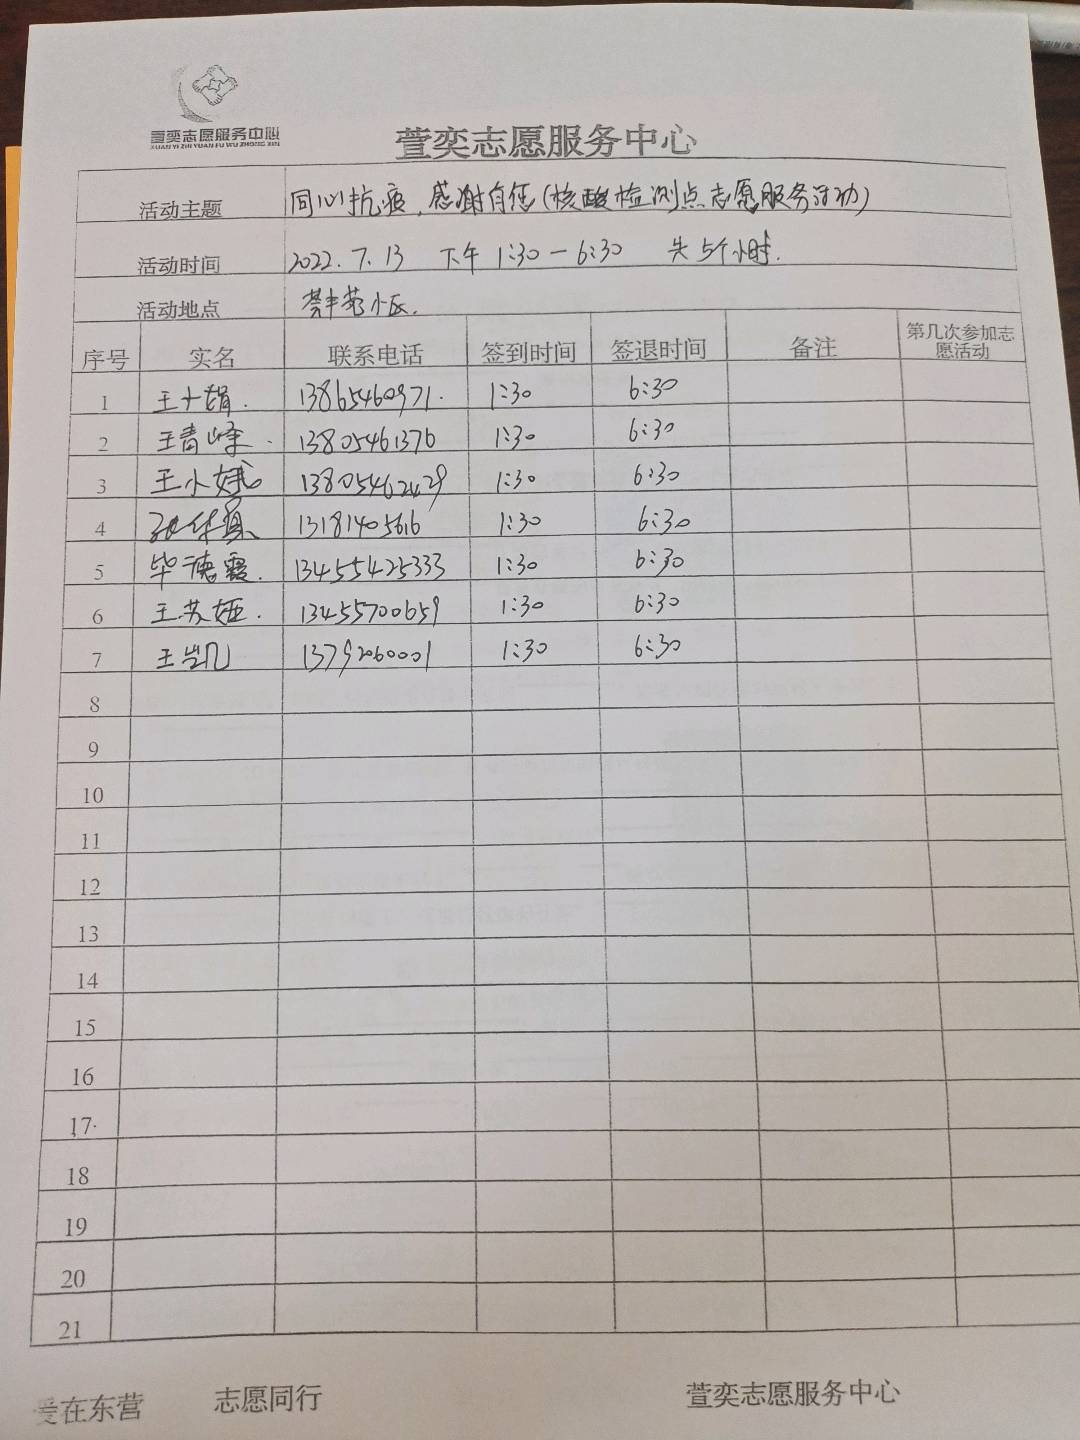 萱奕志愿服务中心
XUAN YI ZHI YUAN FU WU ZHONG XIN
萱奕志愿服务中心
活动主题 同心抗疫,感谢有您(核酸检测点志愿服务活动)
活动时间 2022.7.13 下午 1:30-6:30 共5个小时.
活动地点 小区.
序号 实名 联系电话 签到时间 签退时间 备注 第几次参加志愿活动
1 王 娟. 13865460971. 1:30 6:30
2 王青峰. 13805461376 1:30 6:30
3 王小娥 13805462429 1:30 6:30
4 13181405616 1:30 6:30
5 毕德霞. 13455425333 1:30 6:30
6 王苏娅. 13455700659 1:30 6:30
7 王凯 13792060001 1:30 6:30
8
9
10
11
12
13
14
15
16
17
18
19
20
21
爱在东营 志愿同行 萱奕志愿服务中心